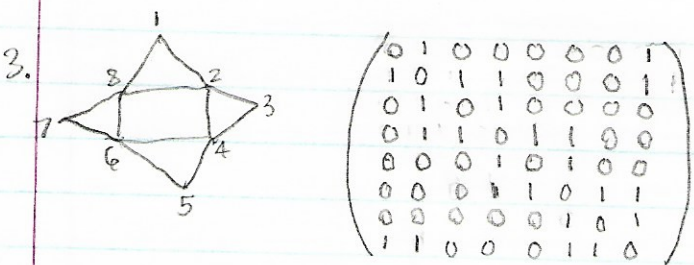 3.
1
8 2
3
7
6 4
5
0 1 0 0 0 0 0 1
1 0 1 1 0 0 0 1
0 1 0 1 0 0 0 0
0 1 1 0 1 1 0 0
0 0 0 1 0 1 0 0
0 0 0 1 1 0 1 1
0 0 0 0 0 1 0 1
1 1 0 0 0 1 1 0